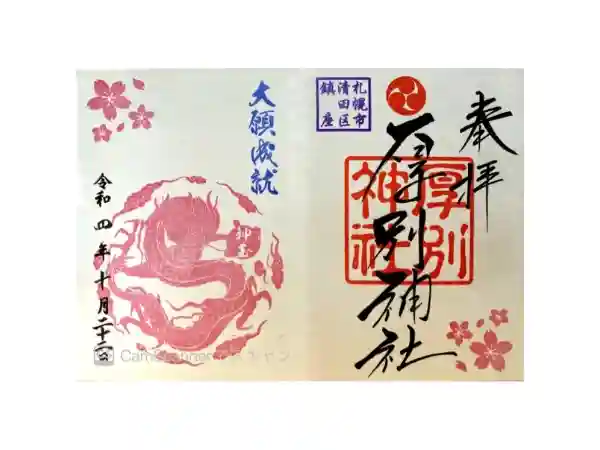 奉拝
札幌市
清田区
鎮座
厚別神社
厚別
神社
大願成就
神玉
令和四年十月二十二日
CamScanner でスキャン